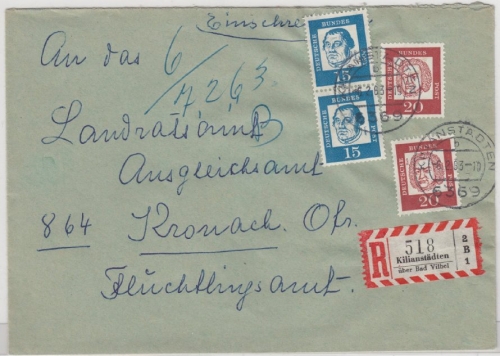 Einschreiben
An das
6/4263
B
Landratsamt
Ausgleichsamt
864 Kronach Ofr.
Flüchtlingsamt.
DEUTSCHE BUNDESPOST
15
DEUTSCHE BUNDESPOST
15
DEUTSCHE BUNDESPOST
20
DEUTSCHE BUNDESPOST
20
6369
KILIANSTÄDTEN
b
63-10
6369
R
518
Kilianstädten
über Bad Vilbel
2
B
1